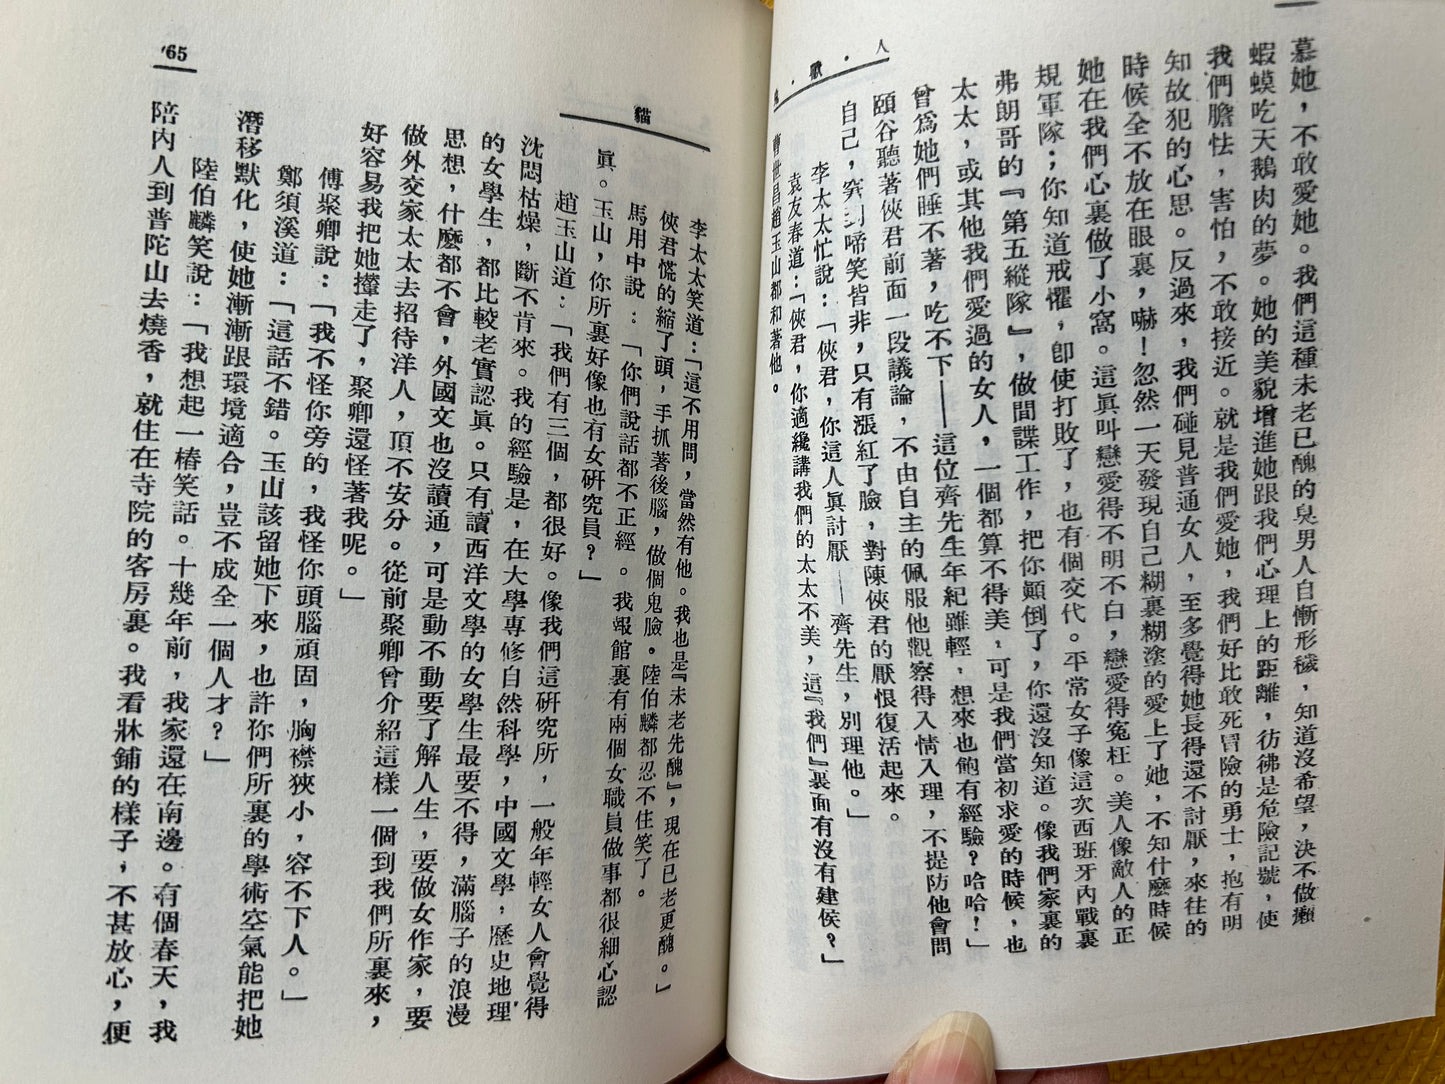 人・獸・鬼
慕她，不敢愛她。我們這種未老已醜的臭男人自慚形穢，知道沒希望，決不做癩
蝦蟆吃天鵝肉的夢。她的美貌增進她跟我們心理上的距離，彷彿是危險記號，使
我們膽怯，害怕，不敢接近。就是我們愛她，我們好比敢死冒險的勇士，抱有明
知故犯的心思。反過來，我們碰見普通女人，至多覺得她長得還不討厭，來往的
時候全不放在眼裏，嚇！忽然一天發現自己糊裏糊塗的愛上了她，不知什麼時候
她在我們心裏做了小窩。這眞叫戀愛得不明不白，戀愛得寃枉。美人像敵人的正
規軍隊；你知道戒懼，卽使打敗了，也有個交代。平常女子像這次西班牙內戰裏
弗朗哥的『第五縱隊』，做間諜工作，把你顚倒了，你還沒知道。像我們家裏的
太太，或其他我們愛過的女人，一個都算不得美，可是我們當初求愛的時候，也
曾爲她們睡不著，吃不下——這位齊先生年紀雖輕，想來也飽有經驗？哈哈！」
頤谷聽著俠君前面一段議論，不由自主的佩服他觀察得入情入理，不提防他會問
自己，窘到啼笑皆非，只有漲紅了臉，對陳俠君的厭恨復活起來。
李太太忙說：「俠君，你這人眞討厭——齊先生，別理他。」
袁友春道：「俠君，你適纔講我們的太太不美，這『我們』裏面有沒有建侯？」
曹世昌趙玉山都和著他。
貓
李太太笑道：「這不用問，當然有他。我也是『未老先醜』，現在已老更醜。」
俠君慌的縮了頭，手抓著後腦，做個鬼臉。陸伯麟都忍不住笑了。
馬用中說：「你們說話都不正經。我報館裏有兩個女職員做事都很細心認
眞。玉山，你所裏好像也有女硏究員？」
趙玉山道：「我們有三個，都很好。像我們這硏究所，一般年輕女人會覺得
沈悶枯燥，斷不肯來。我的經驗是，在大學專修自然科學，中國文學，歷史地理
的女學生，都比較老實認眞。只有讀西洋文學的女學生最要不得，滿腦子的浪漫
思想，什麼都不會，外國文也沒讀通，可是動不動要了解人生，要做女作家，要
做外交家太太去招待洋人，頂不安分。從前聚卿曾介紹這樣一個到我們所裏來，
好容易我把她攆走了，聚卿還怪著我呢。」
傅聚卿說：「我不怪你旁的，我怪你頭腦頑固，胸襟狹小，容不下人。」
鄭須溪道：「這話不錯。玉山該留她下來，也許你們所裏的學術空氣能把她
潛移默化，使她漸漸跟環境適合，豈不成全一個人才？」
陸伯麟笑說：「我想起一樁笑話。十幾年前，我家還在南邊。有個春天，我
陪內人到普陀山去燒香，就住在寺院的客房裏。我看牀鋪的樣子，不甚放心，便
65